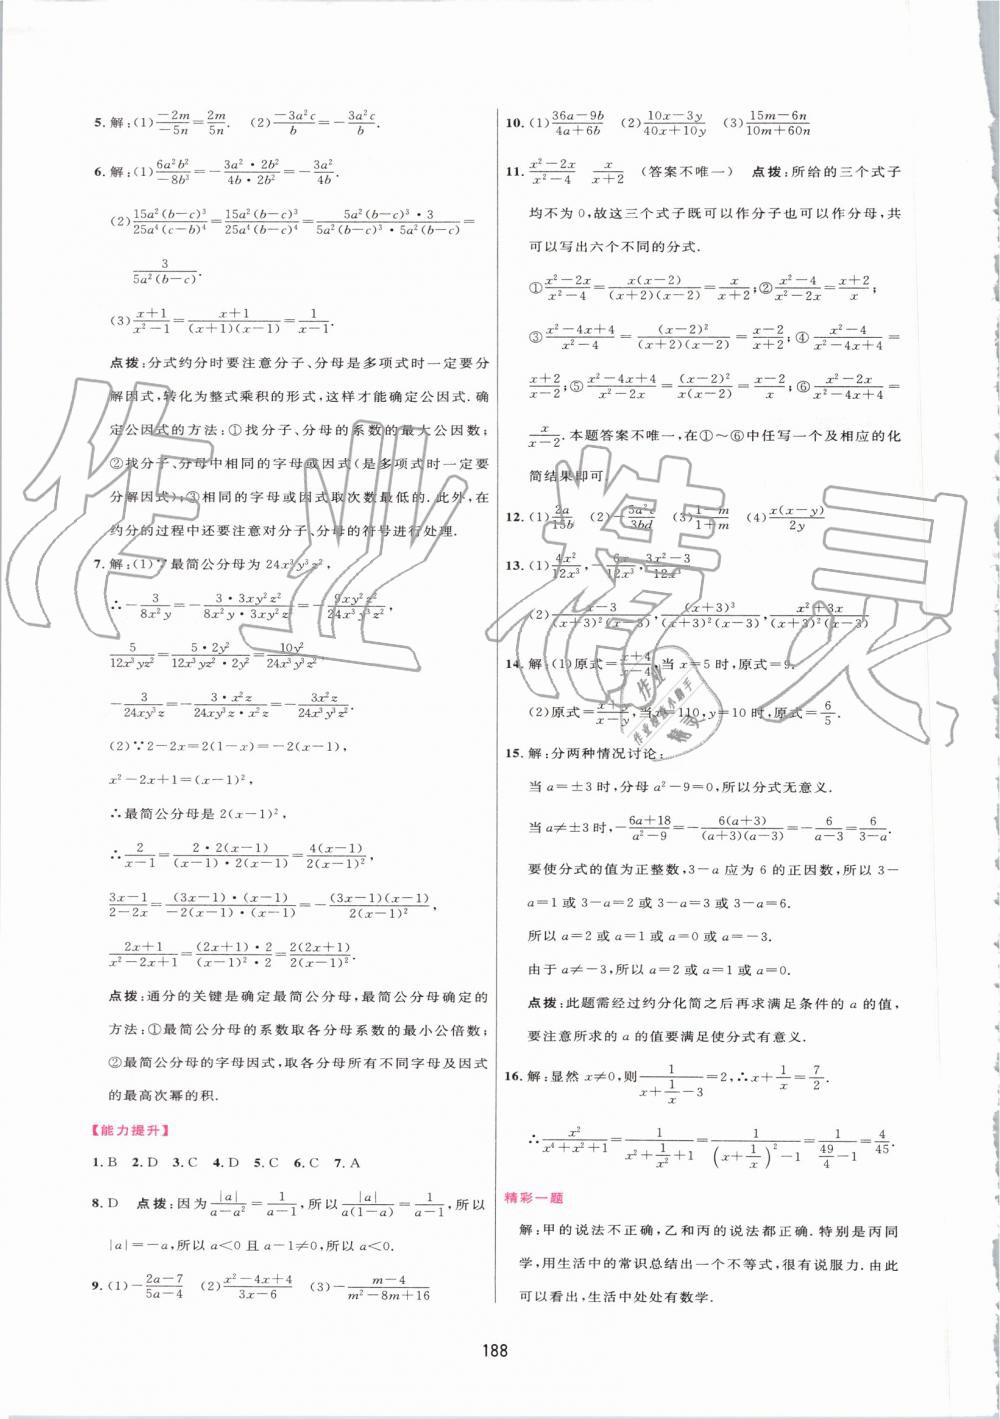 5. 解:(1) $\frac{-2m}{-5n}=\frac{2m}{5n}$. (2) $\frac{-3a^2c}{b}=-\frac{3a^2c}{b}$.
6. 解:(1) $\frac{6a^2b^2}{-8b^3}=-\frac{3a^2\cdot 2b^2}{4b\cdot 2b^2}=-\frac{3a^2}{4b}$.
(2) $\frac{15a^2(b-c)^3}{25a^4(c-b)^4}=\frac{15a^2(b-c)^3}{25a^4(b-c)^4}=\frac{5a^2(b-c)^3\cdot 3}{5a^2(b-c)^3\cdot 5a^2(b-c)}=$
$\frac{3}{5a^2(b-c)}$.
(3) $\frac{x+1}{x^2-1}=\frac{x+1}{(x+1)(x-1)}=\frac{1}{x-1}$.
点拨:分式约分时要注意分子、分母是多项式时一定要分
解因式,转化为整式乘积的形式,这样才能确定公因式. 确
定公因式的方法:①找分子、分母的系数的最大公因数;
②找分子、分母中相同的字母或因式(是多项式时一定要
分解因式);③相同的字母或因式取次数最低的. 此外,在
约分的过程中还要注意对分子、分母的符号进行处理.
7. 解:(1)∵最简公分母为 $24x^3y^3z^2$,
∴ $-\frac{3}{8x^2y}=-\frac{3\cdot 3xy^2z^2}{8x^2y\cdot 3xy^2z^2}=-\frac{9xy^2z^2}{24x^3y^3z^2}$,
$\frac{5}{12x^3yz^2}=\frac{5\cdot 2y^2}{12x^3yz^2\cdot 2y^2}=\frac{10y^2}{24x^3y^3z^2}$,
$-\frac{3}{24xy^3z}=-\frac{3\cdot x^2z}{24xy^3z\cdot x^2z}=-\frac{3x^2z}{24x^3y^3z^2}$.
(2)∵2-2x=2(1-x)=-2(x-1),
$x^2-2x+1=(x-1)^2$,
∴最简公分母是 $2(x-1)^2$,
∴ $\frac{2}{x-1}=\frac{2\cdot 2(x-1)}{(x-1)\cdot 2(x-1)}=\frac{4(x-1)}{2(x-1)^2}$,
$\frac{3x-1}{2-2x}=\frac{(3x-1)\cdot(x-1)}{-2(x-1)\cdot(x-1)}=-\frac{(3x-1)(x-1)}{2(x-1)^2}$,
$\frac{2x+1}{x^2-2x+1}=\frac{(2x+1)\cdot 2}{(x-1)^2\cdot 2}=\frac{2(2x+1)}{2(x-1)^2}$.
点拨:通分的关键是确定最简公分母,最简公分母确定的
方法:①最简公分母的系数取各分母系数的最小公倍数;
②最简公分母的字母因式,取各分母所有不同字母及因式
的最高次幂的积.
【能力提升】
1. B 2. D 3. C 4. D 5. C 6. C 7. A
8. D 点拨:因为 $\frac{|a|}{a-a^2}=\frac{1}{a-1}$,所以 $\frac{|a|}{a(1-a)}=\frac{1}{a-1}$,所以
|a|=-a,所以 a<0 且 a-1≠0,所以 a<0.
9. (1) $-\frac{2a-7}{5a-4}$ (2) $\frac{x^2-4x+4}{3x-6}$ (3) $-\frac{m-4}{m^2-8m+16}$
10. (1) $\frac{36a-9b}{4a+6b}$ (2) $\frac{10x-3y}{40x+10y}$ (3) $\frac{15m-6n}{10m+60n}$
11. $\frac{x^2-2x}{x^2-4}$ $\frac{x}{x+2}$ (答案不唯一) 点拨:所给的三个式子
均不为 0,故这三个式子既可以作分子也可以作分母,共
可以写出六个不同的分式.
① $\frac{x^2-2x}{x^2-4}=\frac{x(x-2)}{(x+2)(x-2)}=\frac{x}{x+2}$;② $\frac{x^2-4}{x^2-2x}=\frac{x+2}{x}$;
③ $\frac{x^2-4x+4}{x^2-4}=\frac{(x-2)^2}{(x+2)(x-2)}=\frac{x-2}{x+2}$;④ $\frac{x^2-4}{x^2-4x+4}=$
$\frac{x+2}{x-2}$;⑤ $\frac{x^2-4x+4}{x^2-2x}=\frac{(x-2)^2}{x(x-2)}=\frac{x-2}{x}$;⑥ $\frac{x^2-2x}{x^2-4x+4}=$
$\frac{x}{x-2}$. 本题答案不唯一,在①~⑥中任写一个及相应的化
简结果即可.
12. (1) $\frac{2a}{15b}$ (2) $-\frac{5a^2c}{3bd}$ (3) $\frac{1-m}{1+m}$ (4) $\frac{x(x-y)}{2y}$
13. (1) $\frac{4x^2}{12x^3}$, $-\frac{6x}{12x^3}$, $\frac{3x^2-3}{12x^3}$
(2) $\frac{x-3}{(x+3)^2(x-3)}$, $\frac{(x+3)^3}{(x+3)^2(x-3)}$, $\frac{x^2+3x}{(x+3)^2(x-3)}$
14. 解:(1)原式= $\frac{x+4}{x-4}$,当 x=5 时,原式=9.
(2)原式= $\frac{x+y}{x-y}$,当 x=110,y=10 时,原式= $\frac{6}{5}$.
15. 解:分两种情况讨论:
当 a=±3 时,分母 $a^2-9=0$,所以分式无意义.
当 a≠±3 时, $-\frac{6a+18}{a^2-9}=-\frac{6(a+3)}{(a+3)(a-3)}=-\frac{6}{a-3}=\frac{6}{3-a}$.
要使分式的值为正整数,3-a 应为 6 的正因数,所以 3-
a=1 或 3-a=2 或 3-a=3 或 3-a=6.
所以 a=2 或 a=1 或 a=0 或 a=-3.
由于 a≠-3,所以 a=2 或 a=1 或 a=0.
点拨:此题需经过约分化简之后再求满足条件的 a 的值,
要注意所求的 a 的值要满足使分式有意义.
16. 解:显然 x≠0,则 $\frac{1}{x+\frac{1}{x}-3}=2$,∴ $x+\frac{1}{x}=\frac{7}{2}$.
∴ $\frac{x^2}{x^4+x^2+1}=\frac{1}{x^2+\frac{1}{x^2}+1}=\frac{1}{\left(x+\frac{1}{x}\right)^2-1}=\frac{1}{\frac{49}{4}-1}=\frac{4}{45}$.
精彩一题
解:甲的说法不正确,乙和丙的说法都正确. 特别是丙同
学,用生活中的常识总结出一个不等式,很有说服力. 由此
可以看出,生活中处处有数学.
188
作业精灵